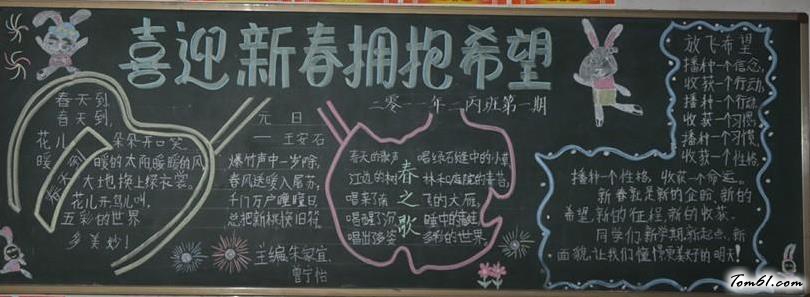 喜迎新春拥抱希望
二零一一年二丙班第一期
春天到
春天到,
春天到,
花儿朵朵开口笑
暖暖的太阳暖暖的风
大地换上绿衣裳。
花儿开鸟儿叫,
五彩的世界
多美妙!
元日
王安石
爆竹声中一岁除,
春风送暖入屠苏,
千门万户曈曈日
总把新桃换旧符。
主编:朱家宜
曾宁怡
春之歌
春天的歌声
江边的树
唱来了南
唱醒了沉
唱出多姿
唱绿石缝中的小草
林和庭院的青苔,
飞的大雁,
睡中的青蛙
多彩的世界,
放飞希望
播种一个信念,
收获一个行动,
播种一个行动,
收获一个习惯,
播种一个习惯,
收获一个性格,
播种一个性格,收获一个命运。
新春就是新的企盼,新的
希望,新的征程,新的收获。
同学们,新学期,新起点,新
面貌,让我们憧憬更美好的明天!
Tom61.com